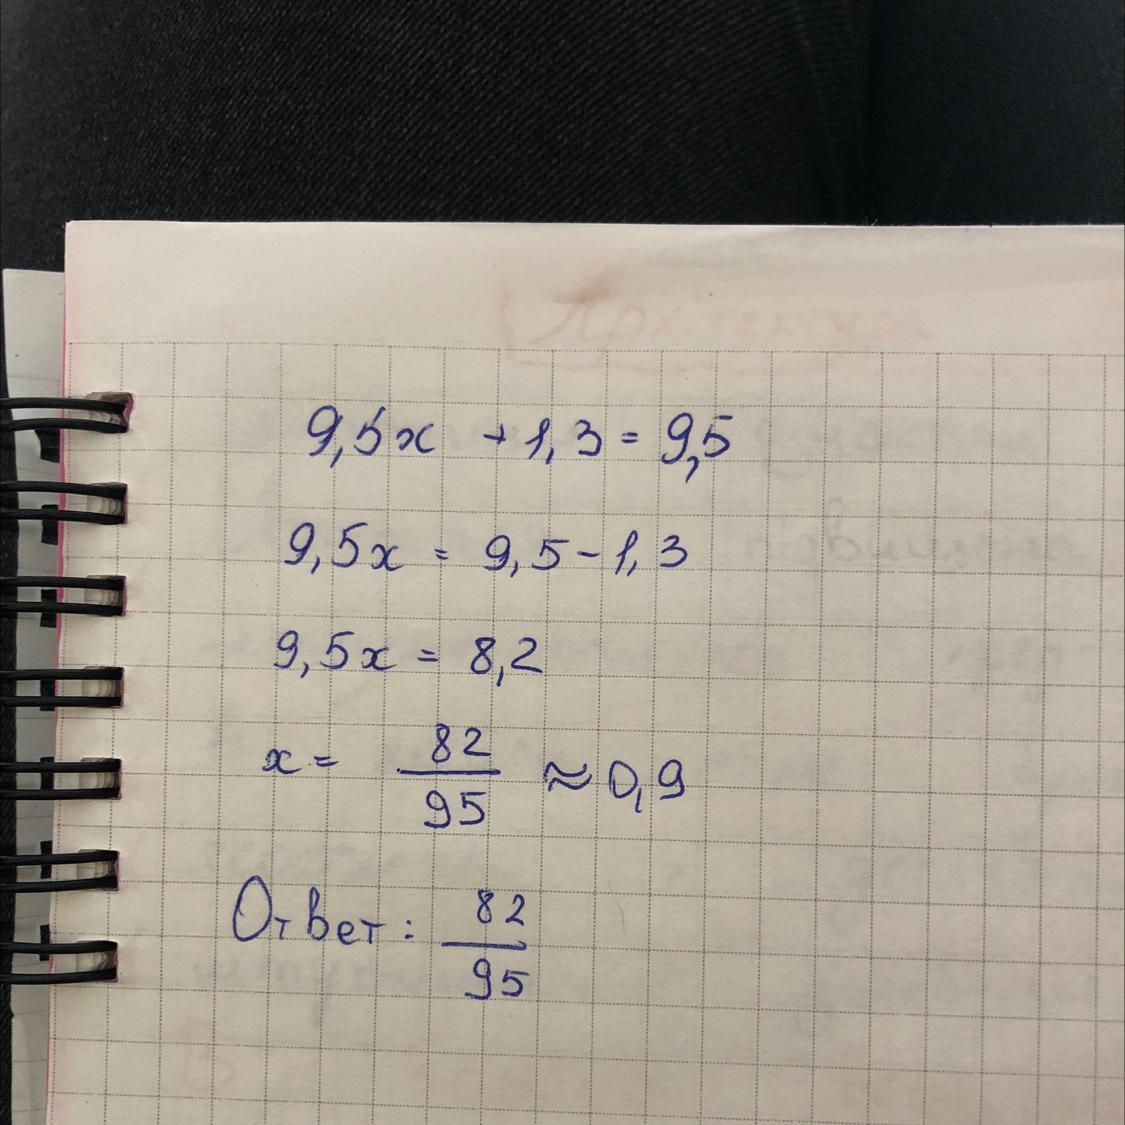 9,5x + 1,3 = 9,5
9,5x = 9,5 - 1,3
9,5x = 8,2
x = 82/95 ≈ 0,9
Ответ: 82/95